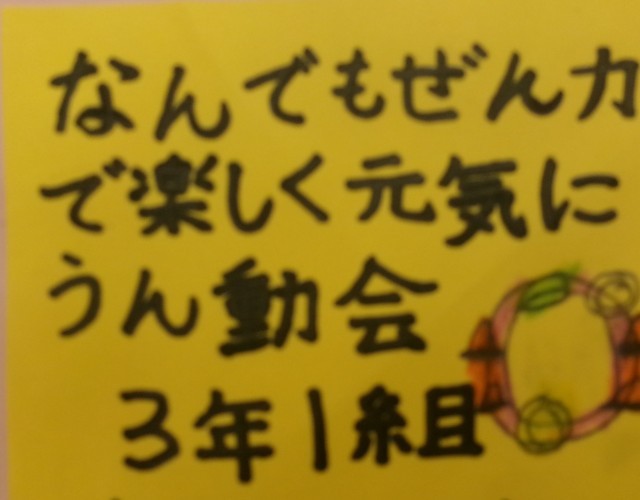 なんでもぜん力
で楽しく元気に
うん動会
3年1組